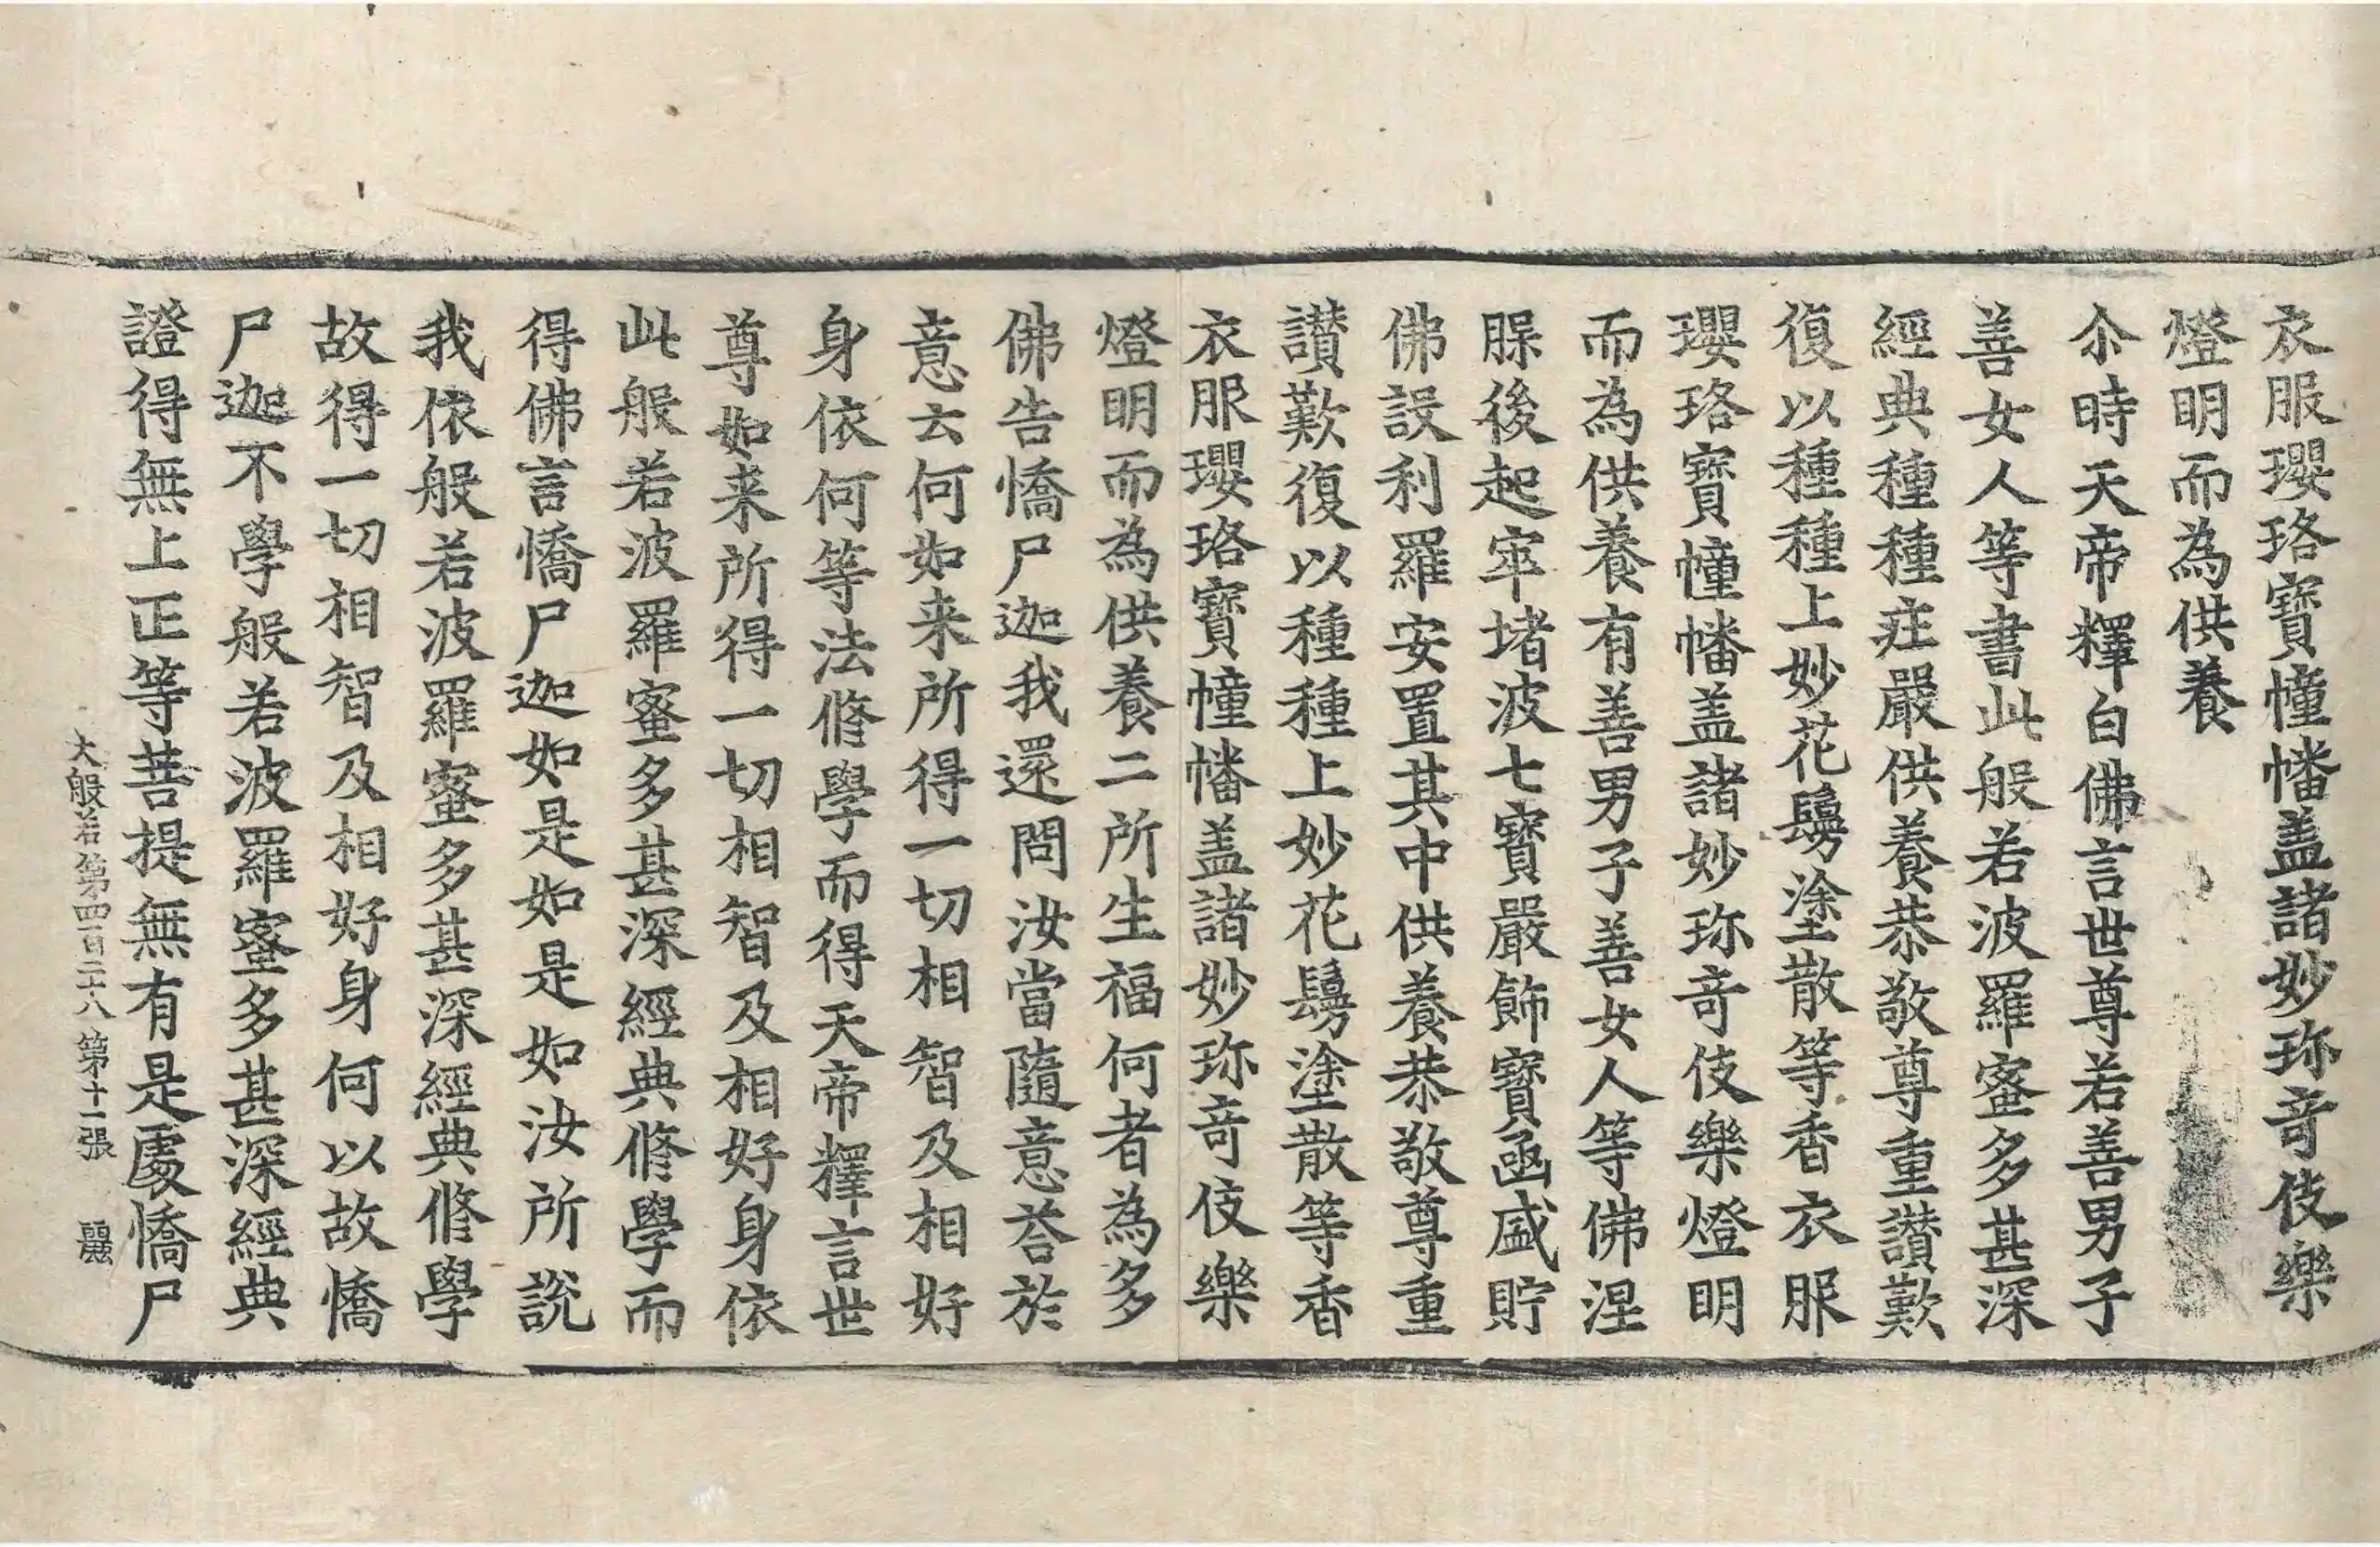 衣服瓔珞寶幢幡盖諸妙珎竒伎樂
燈明而為供養
尒時天帝釋白佛言世尊若善男子
善女人等書此般若波羅蜜多甚深
經典種種莊嚴供養恭敬尊重讚歎
復以種種上妙花鬘塗散等香衣服
瓔珞寶幢幡盖諸妙珎竒伎樂燈明
而為供養有善男子善女人等佛涅
槃後起窣堵波七寶嚴飾寶函盛貯
佛設利羅安置其中供養恭敬尊重
讚歎復以種種上妙花鬘塗散等香
衣服瓔珞寶幢幡盖諸妙珎竒伎樂
燈明而為供養二所生福何者為多
佛告憍尸迦我還問汝當隨意荅於
意云何如来所得一切相智及相好
身依何等法修學而得天帝釋言世
尊如来所得一切相智及相好身依
此般若波羅蜜多甚深經典修學而
得佛言憍尸迦如是如是如汝所說
我依般若波羅蜜多甚深經典修學
故得一切相智及相好身何以故憍
尸迦不學般若波羅蜜多甚深經典
證得無上正等菩提無有是處憍尸
大般若第四百二十八 第十一張 麗